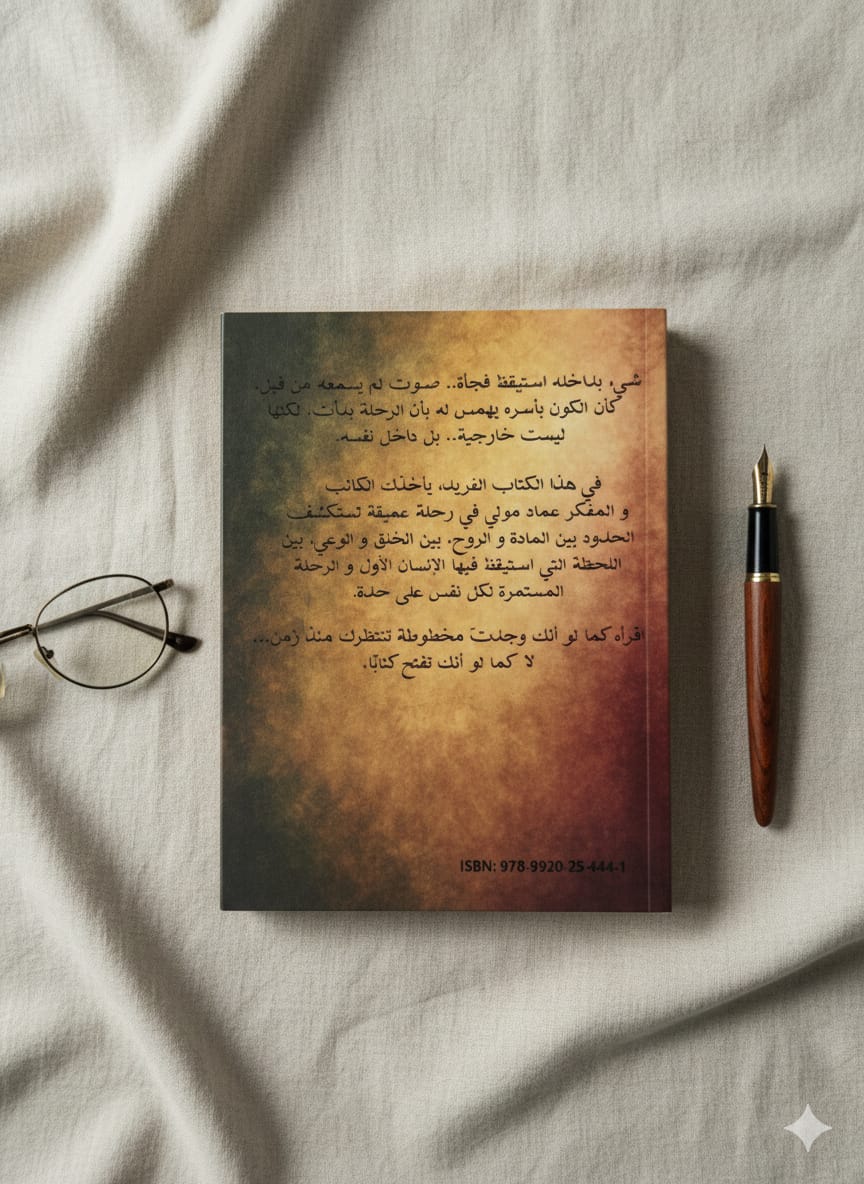 شيء بداخله استيقظ فجأة.. صوت لم يسمعه من قبل.
كأن الكون بأسره يهمس له بأن الرحلة بدأت. لكنها
ليست خارجية.. بل داخل نفسه.
في هذا الكتاب الفريد، يأخذك الكاتب
و المفكر عماد مولي في رحلة عميقة تستكشف
الحدود بين المادة و الروح. بين الخلق و الوعي. بين
اللحظة التي استيقظ فيها الإنسان الأول و الرحلة
المستمرة لكل نفس على حدة.
اقرأه كما لو أنك وجدت مخطوطة تنتظرك منذ زمن...
لا كما لو أنك تفتح كتابًا.
ISBN: 978-9920-25-444-1